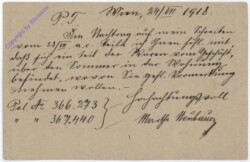 P. T. Wien, 24/VII 1918.
Im Nachtrag zu m. Schreiben
vom 23/VII a. c. teile ich Ihnen höfl. mit,
daß sich ein Teil der Waren vom Geschäft,
über den Sommer in der Wohnung
befindet, wovon Sie gefl. Vormerkung
nehmen wollen.
Pol. Nr. 366.273 Hochachtungsvoll
" " 367.440